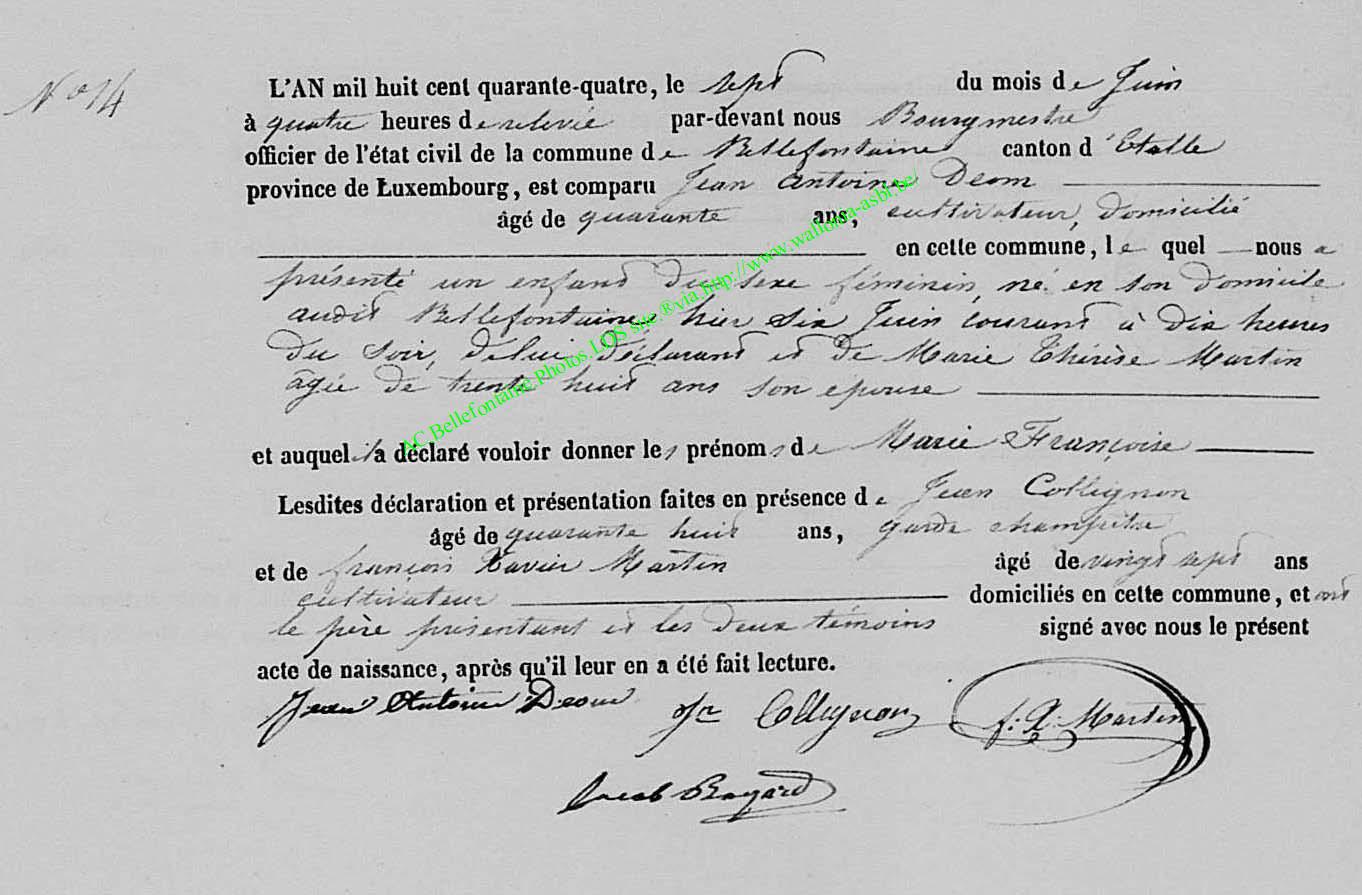 N° 14
L'AN mil huit cent quarante-quatre, le sept du mois de Juin
à quatre heures de relevée par-devant nous Bourgmestre
officier de l'état civil de la commune de Bellefontaine canton d'Etalle
province de Luxembourg, est comparu Jean Antoine Deom
âgé de quarante ans, cultivateur, domicilié
en cette commune, le quel nous a
présenté un enfant du sexe féminin, né en son domicile
audit Bellefontaine, hier six Juin courant à dix heures
du soir, de lui déclarant et de Marie Thérèse Martin
âgée de trente huit ans son épouse
et auquel il a déclaré vouloir donner les prénoms de Marie Françoise
Lesdites déclaration et présentation faites en présence de Jean Collignon
âgé de quarante huit ans, garde champêtre
et de françois Xavier Martin âgé de vingt sept ans
cultivateur domiciliés en cette commune, et ont
le père présentant et les deux témoins signé avec nous le présent
acte de naissance, après qu'il leur en a été fait lecture.
Jean Antoine Deom Collignon f. X. Martin
Jacob Bayard
AC Bellefontaine Photos LOS site ®via http://www.wallonia-asbl.be/